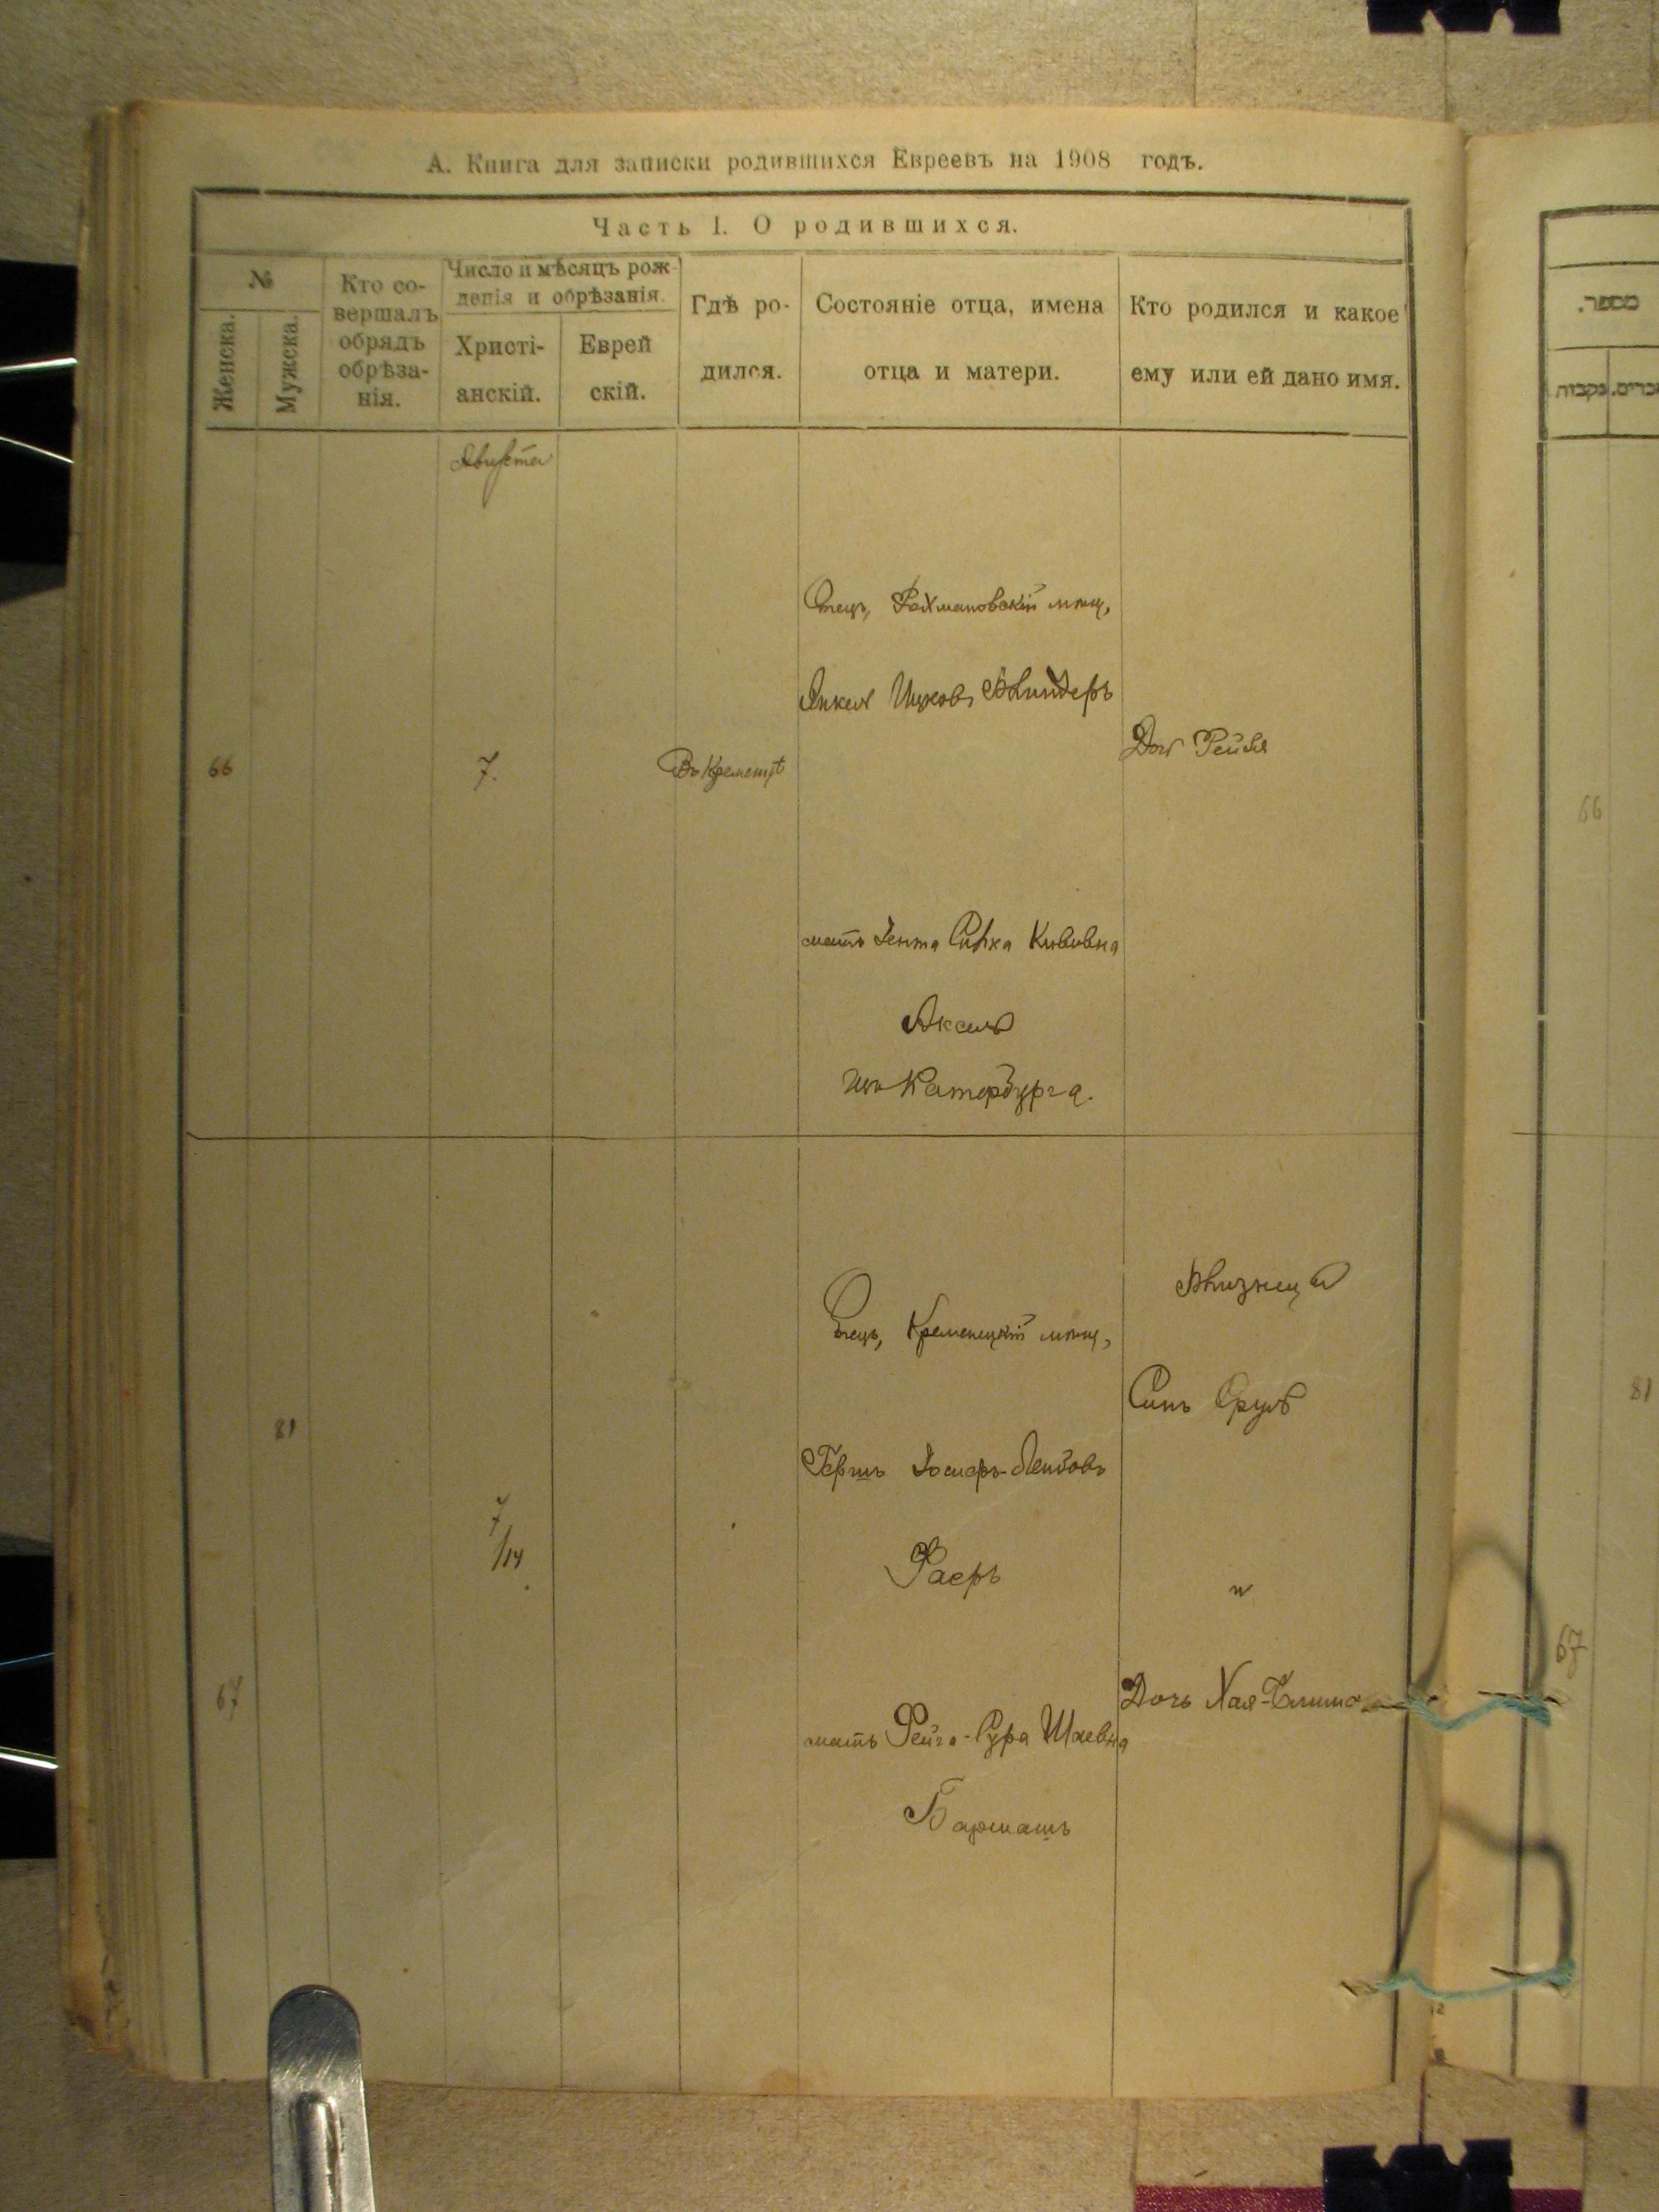 А. Книга для записки родившихся Евреевъ на 1908 годъ.
Часть I. О родившихся.
№
Женска.
Мужска.
Кто со-
вершалъ
обрядъ
обрѣза-
нія.
Число и мѣсяцъ рож-
денія и обрѣзанія.
Христі-
анскій.
Еврей
скій.
Гдѣ ро-
дился.
Состояніе отца, имена
отца и матери.
Кто родился и какое
ему или ей дано имя.
Августа
66
7.
Въ Кременцѣ
Отецъ, Рахмановскій мѣщ,
Янкель Ицковъ Блиндеръ
мать Гента Сирка Кивовна
Аксель
изъ Катербурга.
Дочь Рейзя
81
67
7
/14
Отецъ, Кременецкій мѣщ,
Гершъ Іосифъ-Лейбовъ
Фаеръ
мать Фейга-Сура Шаевна
Бармашъ
Близнецы
Сынъ Срулъ
"
Дочь Хая-
מספר.
זכרים.
נקבות
66
81
67